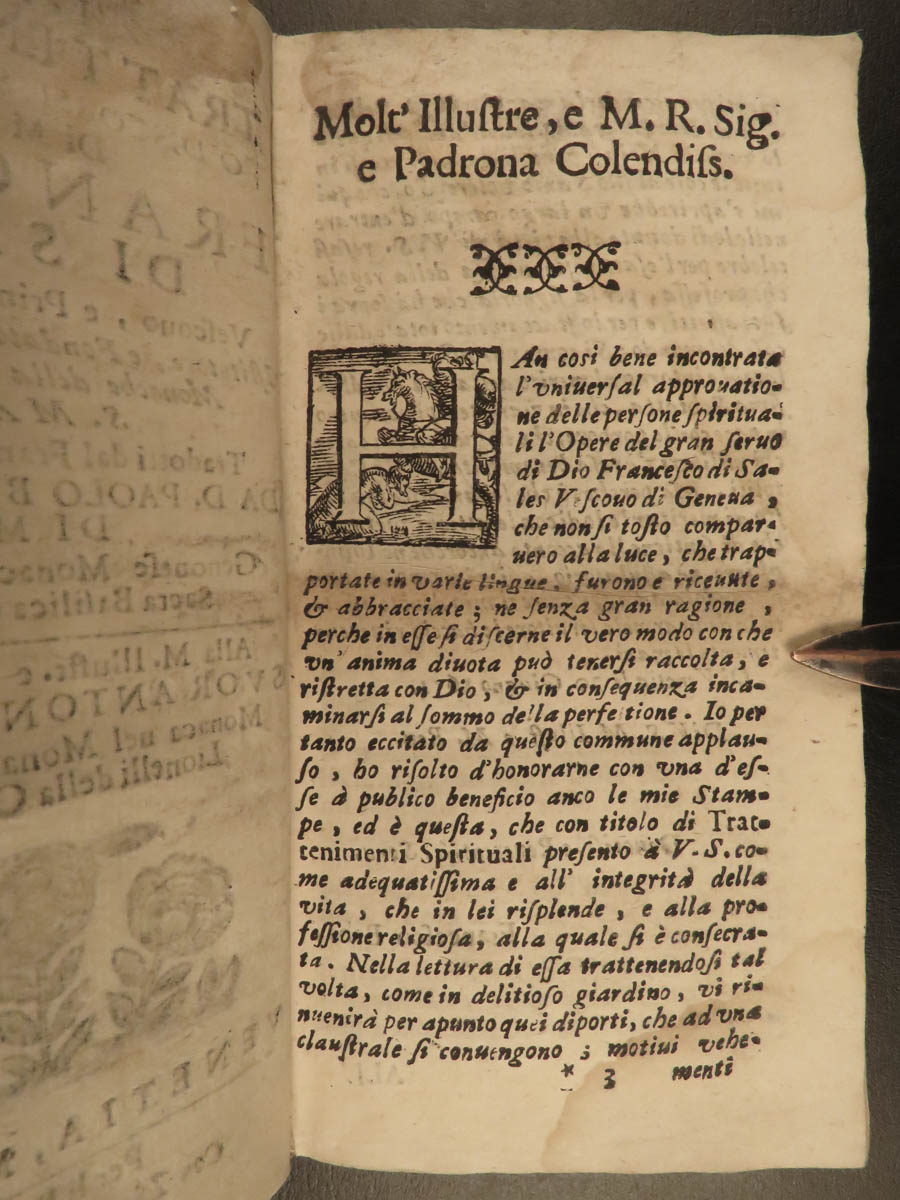 Molt' Illuſtre, e M. R. Sig.
e Padrona Colendiſs.
HAn cosi bene incontrata
l'vniuerſal approuatio-
ne delle perſone ſpiritua-
li l'Opere del gran ſeruo
di Dio Franceſco di Sa-
les Veſcouo di Geneua,
che non ſi toſto compar-
uero alla luce, che traſ-
portate in varie lingue. furono e riceuute,
& abbracciate; ne ſenza gran ragione,
perche in eſſe ſi diſcerne il vero modo con che
vn' anima diuota può tenerſi raccolta, e
riſtretta con Dio, & in conſequenza inca-
minarſi al ſommo della perfe tione. Io per
tanto eccitato da queſto commune applau-
ſo, ho riſolto d'honorarne con vna d'eſ-
ſe à publico beneficio anco le mie Stam-
pe, ed è queſta, che con titolo di Trat-
tenimenti Spirituali preſento à V. S. co-
me adequatiſſima e all' integrità della
vita, che in lei riſplende, e alla pro-
feſſione religioſa, alla quale ſi è conſecra-
ta. Nella lettura di eſſa trattenendoſi tal
volta, come in delitioſo giardino, vi ri-
nuenirà per apunto quei diporti, che ad vna
clauſtrale ſi conuengono; motiui vehe-
* 3 menti